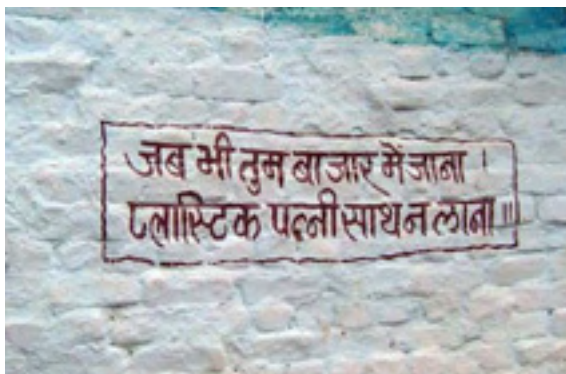 जब भी तुम बाजार में जाना ।
प्लास्टिक पत्नी साथ न लाना ॥